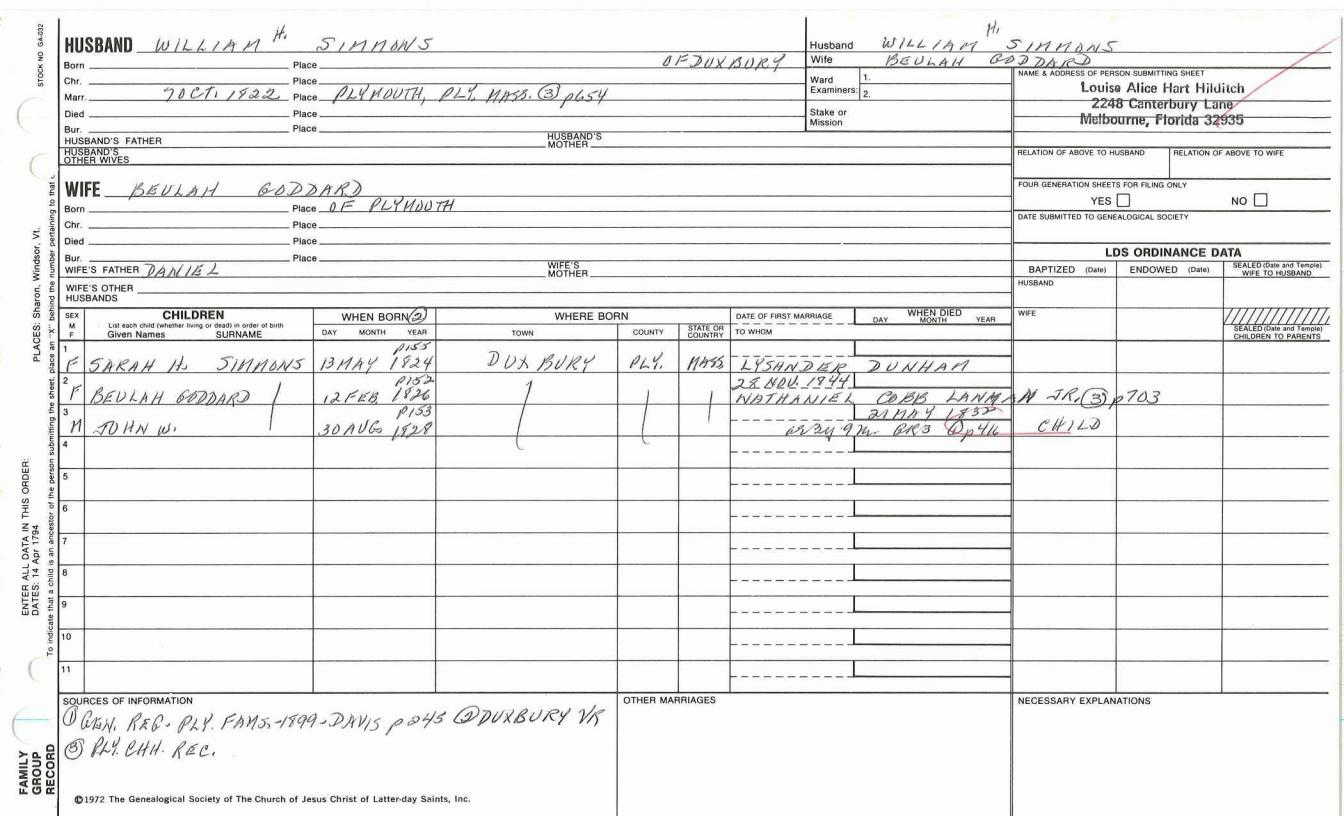 STOCK NO GA-032
HUSBAND WILLIAM H. SIMMONS
Born Place OF DUXBURY
Chr. Place
Marr. 7 OCT. 1822 Place PLYMOUTH, PLY. MASS. (3) p654
Died Place
Bur. Place
HUSBAND'S FATHER HUSBAND'S MOTHER
HUSBAND'S OTHER WIVES
Husband WILLIAM H. SIMMONS
Wife BEULAH GODDARD
Ward Examiners: 1. 2.
Stake or Mission
NAME & ADDRESS OF PERSON SUBMITTING SHEET
Louise Alice Hart Hilditch
2248 Canterbury Lane
Melbourne, Florida 32935
RELATION OF ABOVE TO HUSBAND RELATION OF ABOVE TO WIFE
FOUR GENERATION SHEETS FOR FILING ONLY
YES NO
DATE SUBMITTED TO GENEALOGICAL SOCIETY
WIFE BEULAH GODDARD
Born Place OF PLYMOUTH
Chr. Place
Died Place
Bur. Place
WIFE'S FATHER DANIEL WIFE'S MOTHER
WIFE'S OTHER HUSBANDS
LDS ORDINANCE DATA
BAPTIZED (Date) ENDOWED (Date) SEALED (Date and Temple) WIFE TO HUSBAND
HUSBAND
WIFE
SEALED (Date and Temple) CHILDREN TO PARENTS
SEX M F CHILDREN List each child (whether living or dead) in order of birth Given Names SURNAME
WHEN BORN (2) DAY MONTH YEAR
WHERE BORN TOWN COUNTY STATE OR COUNTRY
DATE OF FIRST MARRIAGE TO WHOM
WHEN DIED DAY MONTH YEAR
p155
1 F SARAH H. SIMMONS 13 MAY 1824 DUXBURY PLY. MASS LYSANDER DUNHAM
p152 28 NOV. 1844
2 F BEULAH GODDARD 12 FEB 1826 NATHANIEL COBB LANMAN JR. (3) p703
p153 21 MAY 1832
3 M JOHN W. 30 AUG 1828 2y 9m. GR3 (2) p416 CHILD
4
5
6
7
8
9
10
11
SOURCES OF INFORMATION
(1) GEN. REG. PLY. FAMS.-1899-DAVIS p245 (2) DUXBURY VR
(3) PLY. CHH. REC.
OTHER MARRIAGES
NECESSARY EXPLANATIONS
©1972 The Genealogical Society of The Church of Jesus Christ of Latter-day Saints, Inc.
PLACES: Sharon, Windsor, Vt.
ENTER ALL DATA IN THIS ORDER:
DATES: 14 Apr 1794
To indicate that a child is an ancestor of the person submitting the sheet, place an "X" behind the number pertaining to that
FAMILY GROUP RECORD